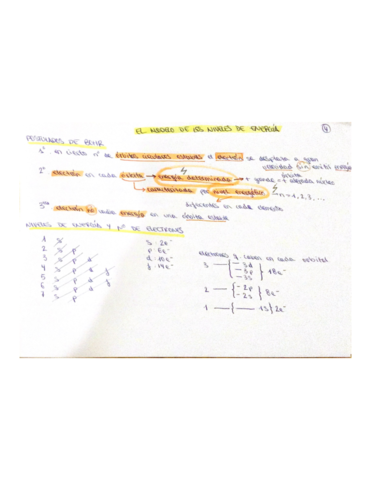 EL MODELO DE LOS NIVELES DE ENERGÍA
4
POSTULADOS DE BOHR
1º en cierto nº de órbitas circulares estables el electrón se desplaza a gran
velocidad sin emitir energía
2º electrón en cada órbita → energía determinada → + grande = + alejada núcleo
órbita
→ caracterizadas por nivel energético
n = 1, 2, 3, ...
3º electrón no energía en una órbita estable
en cada elemento
NIVELES DE ENERGÍA Y Nº DE ELECTRONES
1 s
2 s p
3 s p d
4 s p d f
5 s p d f
6 s p d
7 s p
s : 2e⁻
p : 6e⁻
d : 10e⁻
f : 14e⁻
electrones y en cada orbital
3 — { - 3d - 3p - 3s } 18e⁻
2 — { - 2p - 2s } 8e⁻
1 — { — 1s } 2e⁻